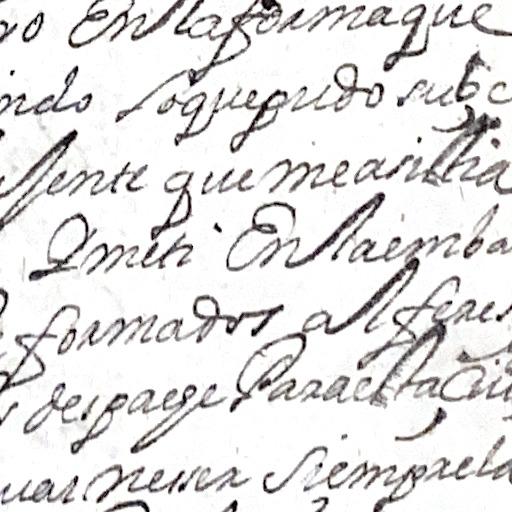 ro En la forma que
indo lo que pudo sub c
a gente que me asistia
Y meti En la emba
formados alferes
s despaege Para esta Ciu
uar nesesr siempre la